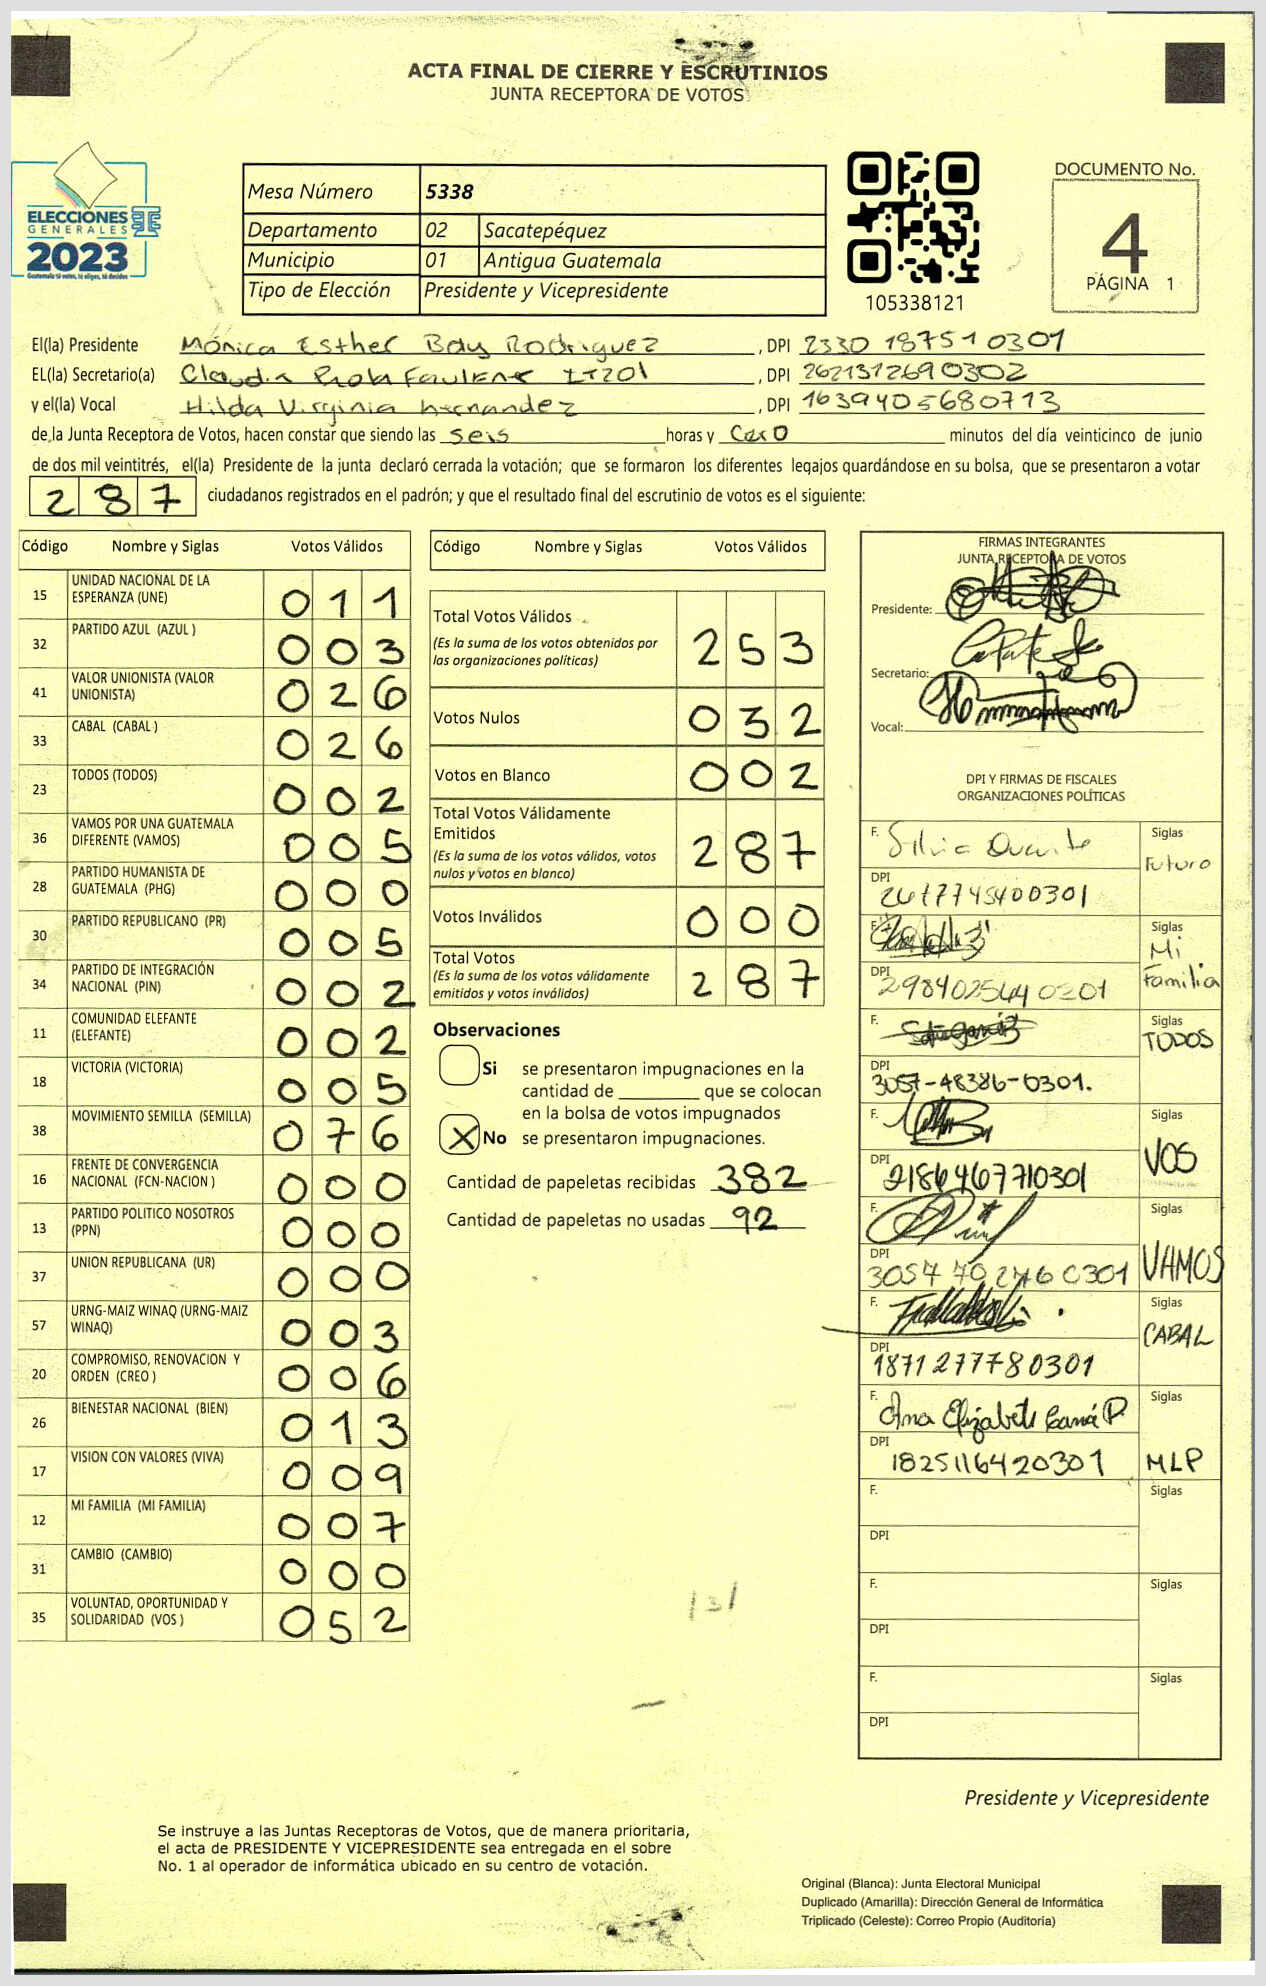 ACTA FINAL DE CIERRE Y ESCRUTINIOS
JUNTA RECEPTORA DE VOTOS
ELECCIONES
GENERALES
2023
Guatemala tú votas, tú eliges, tú decides
Mesa Número 5338
Departamento 02 Sacatepéquez
Municipio 01 Antigua Guatemala
Tipo de Elección Presidente y Vicepresidente
105338121
DOCUMENTO No.
4
PÁGINA 1
El(la) Presidente Mónica Esther Bay Rodriguez, DPI 2330 18751 0301
EL(la) Secretario(a) Claudia, DPI 2621312690302
y el(la) Vocal Hilda Virginia hernandez, DPI 1639405680713
de la Junta Receptora de Votos, hacen constar que siendo las seis horas y cero minutos del día veinticinco de junio
de dos mil veintitrés, el(la) Presidente de la junta declaró cerrada la votación; que se formaron los diferentes legajos quardándose en su bolsa, que se presentaron a votar
287 ciudadanos registrados en el padrón; y que el resultado final del escrutinio de votos es el siguiente:
Código Nombre y Siglas Votos Válidos
15 UNIDAD NACIONAL DE LA ESPERANZA (UNE) 011
32 PARTIDO AZUL (AZUL ) 003
41 VALOR UNIONISTA (VALOR UNIONISTA) 026
33 CABAL (CABAL ) 026
23 TODOS (TODOS) 002
36 VAMOS POR UNA GUATEMALA DIFERENTE (VAMOS) 005
28 PARTIDO HUMANISTA DE GUATEMALA (PHG) 000
30 PARTIDO REPUBLICANO (PR) 005
34 PARTIDO DE INTEGRACIÓN NACIONAL (PIN) 002
11 COMUNIDAD ELEFANTE (ELEFANTE) 002
18 VICTORIA (VICTORIA) 005
38 MOVIMIENTO SEMILLA (SEMILLA) 076
16 FRENTE DE CONVERGENCIA NACIONAL (FCN-NACION ) 000
13 PARTIDO POLITICO NOSOTROS (PPN) 000
37 UNION REPUBLICANA (UR) 000
57 URNG-MAIZ WINAQ (URNG-MAIZ WINAQ) 003
20 COMPROMISO, RENOVACION Y ORDEN (CREO ) 006
26 BIENESTAR NACIONAL (BIEN) 013
17 VISION CON VALORES (VIVA) 009
12 MI FAMILIA (MI FAMILIA) 007
31 CAMBIO (CAMBIO) 000
35 VOLUNTAD, OPORTUNIDAD Y SOLIDARIDAD (VOS ) 052
Código Nombre y Siglas Votos Válidos
Total Votos Válidos 253
(Es la suma de los votos obtenidos por
las organizaciones políticas)
Votos Nulos 032
Votos en Blanco 002
Total Votos Válidamente
Emitidos 287
(Es la suma de los votos válidos, votos
nulos y votos en blanco)
Votos Inválidos 000
Total Votos 287
(Es la suma de los votos válidamente
emitidos y votos inválidos)
Observaciones
Si se presentaron impugnaciones en la
cantidad de ________ que se colocan
en la bolsa de votos impugnados
X No se presentaron impugnaciones.
Cantidad de papeletas recibidas 382
Cantidad de papeletas no usadas 92
FIRMAS INTEGRANTES
JUNTA RECEPTORA DE VOTOS
Presidente:
Secretario:
Vocal:
DPI Y FIRMAS DE FISCALES
ORGANIZACIONES POLÍTICAS
F. Silvia Duarte Siglas Futuro
DPI 2617745400301
F. Siglas Mi Familia
DPI 2984025640201
F. Siglas TODOS
DPI 3057-48386-0301.
F. Siglas VOS
DPI 2186467710301
F. Siglas VAMOS
DPI 3057 70276 0301
F. Siglas CABAL
DPI 1871277780301
F. Ana Elizabeth P. Siglas MLP
DPI 1825116420301
F. Siglas
DPI
F. Siglas
DPI
F. Siglas
DPI
Presidente y Vicepresidente
Se instruye a las Juntas Receptoras de Votos, que de manera prioritaria,
el acta de PRESIDENTE Y VICEPRESIDENTE sea entregada en el sobre
No. 1 al operador de informática ubicado en su centro de votación.
Original (Blanca): Junta Electoral Municipal
Duplicado (Amarilla): Dirección General de Informática
Triplicado (Celeste): Correo Propio (Auditoría)